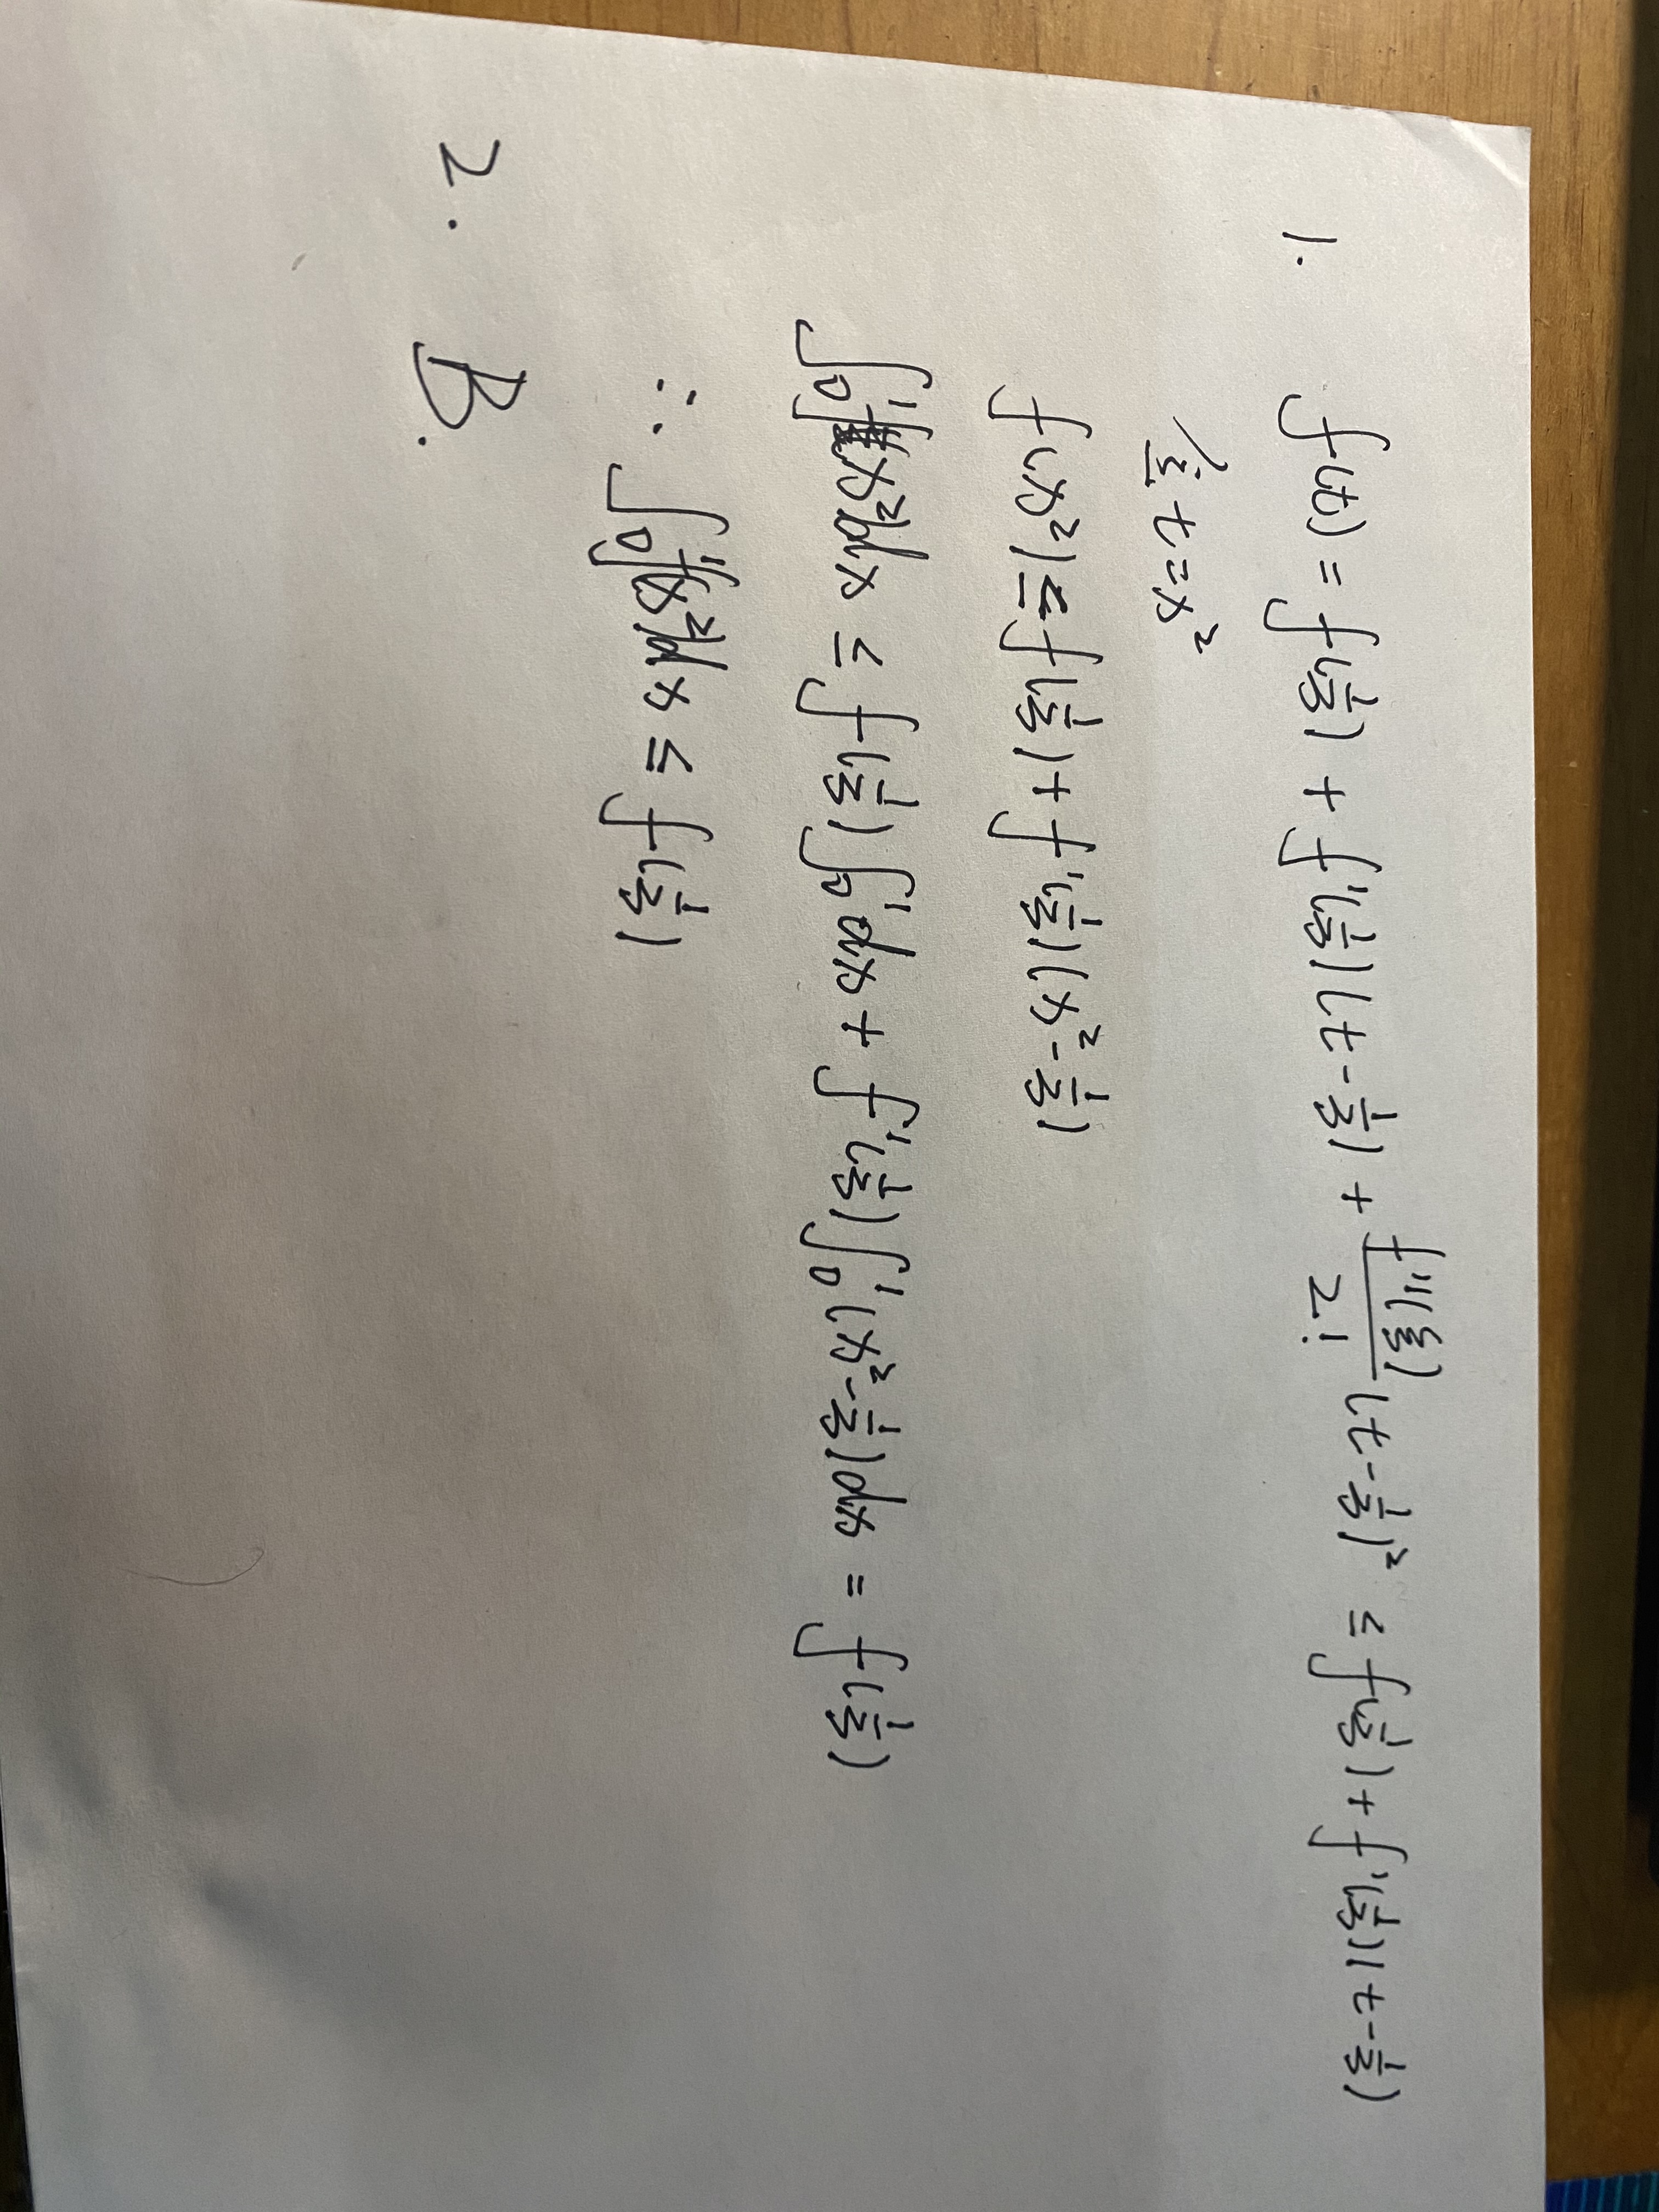 1. f(t) = f(1/3) + f'(1/3)(t - 1/3) + f''(ξ)/2! (t - 1/3)² ≤ f(1/3) + f'(1/3)(t - 1/3)
令 t = x²
f(x²) ≤ f(1/3) + f'(1/3)(x² - 1/3)
∫₀¹ f(x²)dx ≤ f(1/3)∫₀¹ dx + f'(1/3)∫₀¹ (x² - 1/3)dx = f(1/3)
∴ ∫₀¹ f(x²)dx ≤ f(1/3)
2. B.